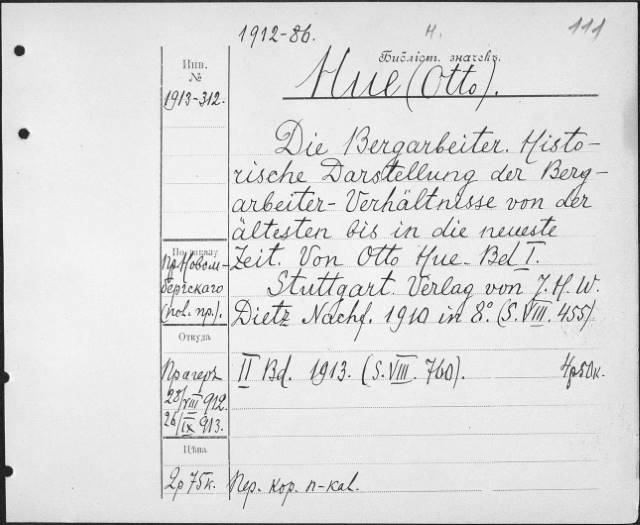 1912-86.
H.
111
Инв.
№
Библіот. значекъ.
Hue (Otto).
1913-312.
Die Bergarbeiter. Histo-
rische Darstellung der Berg-
arbeiter-Verhältnisse von der
ältesten bis in die neueste
Zeit. Von Otto Hue. Bd I.
По заказу
бергскаго
Stuttgart. Verlag von J. H. W.
Dietz Nachf. 1910 in 8º. (S. VIII. 455)
Откуда
Прагеръ
28/VIII 912.
26/IX 913.
II Bd. 1913. (S. VIII. 760).
4р50к.
Цѣна
2р 75к.
Пер. кор. п-кал.